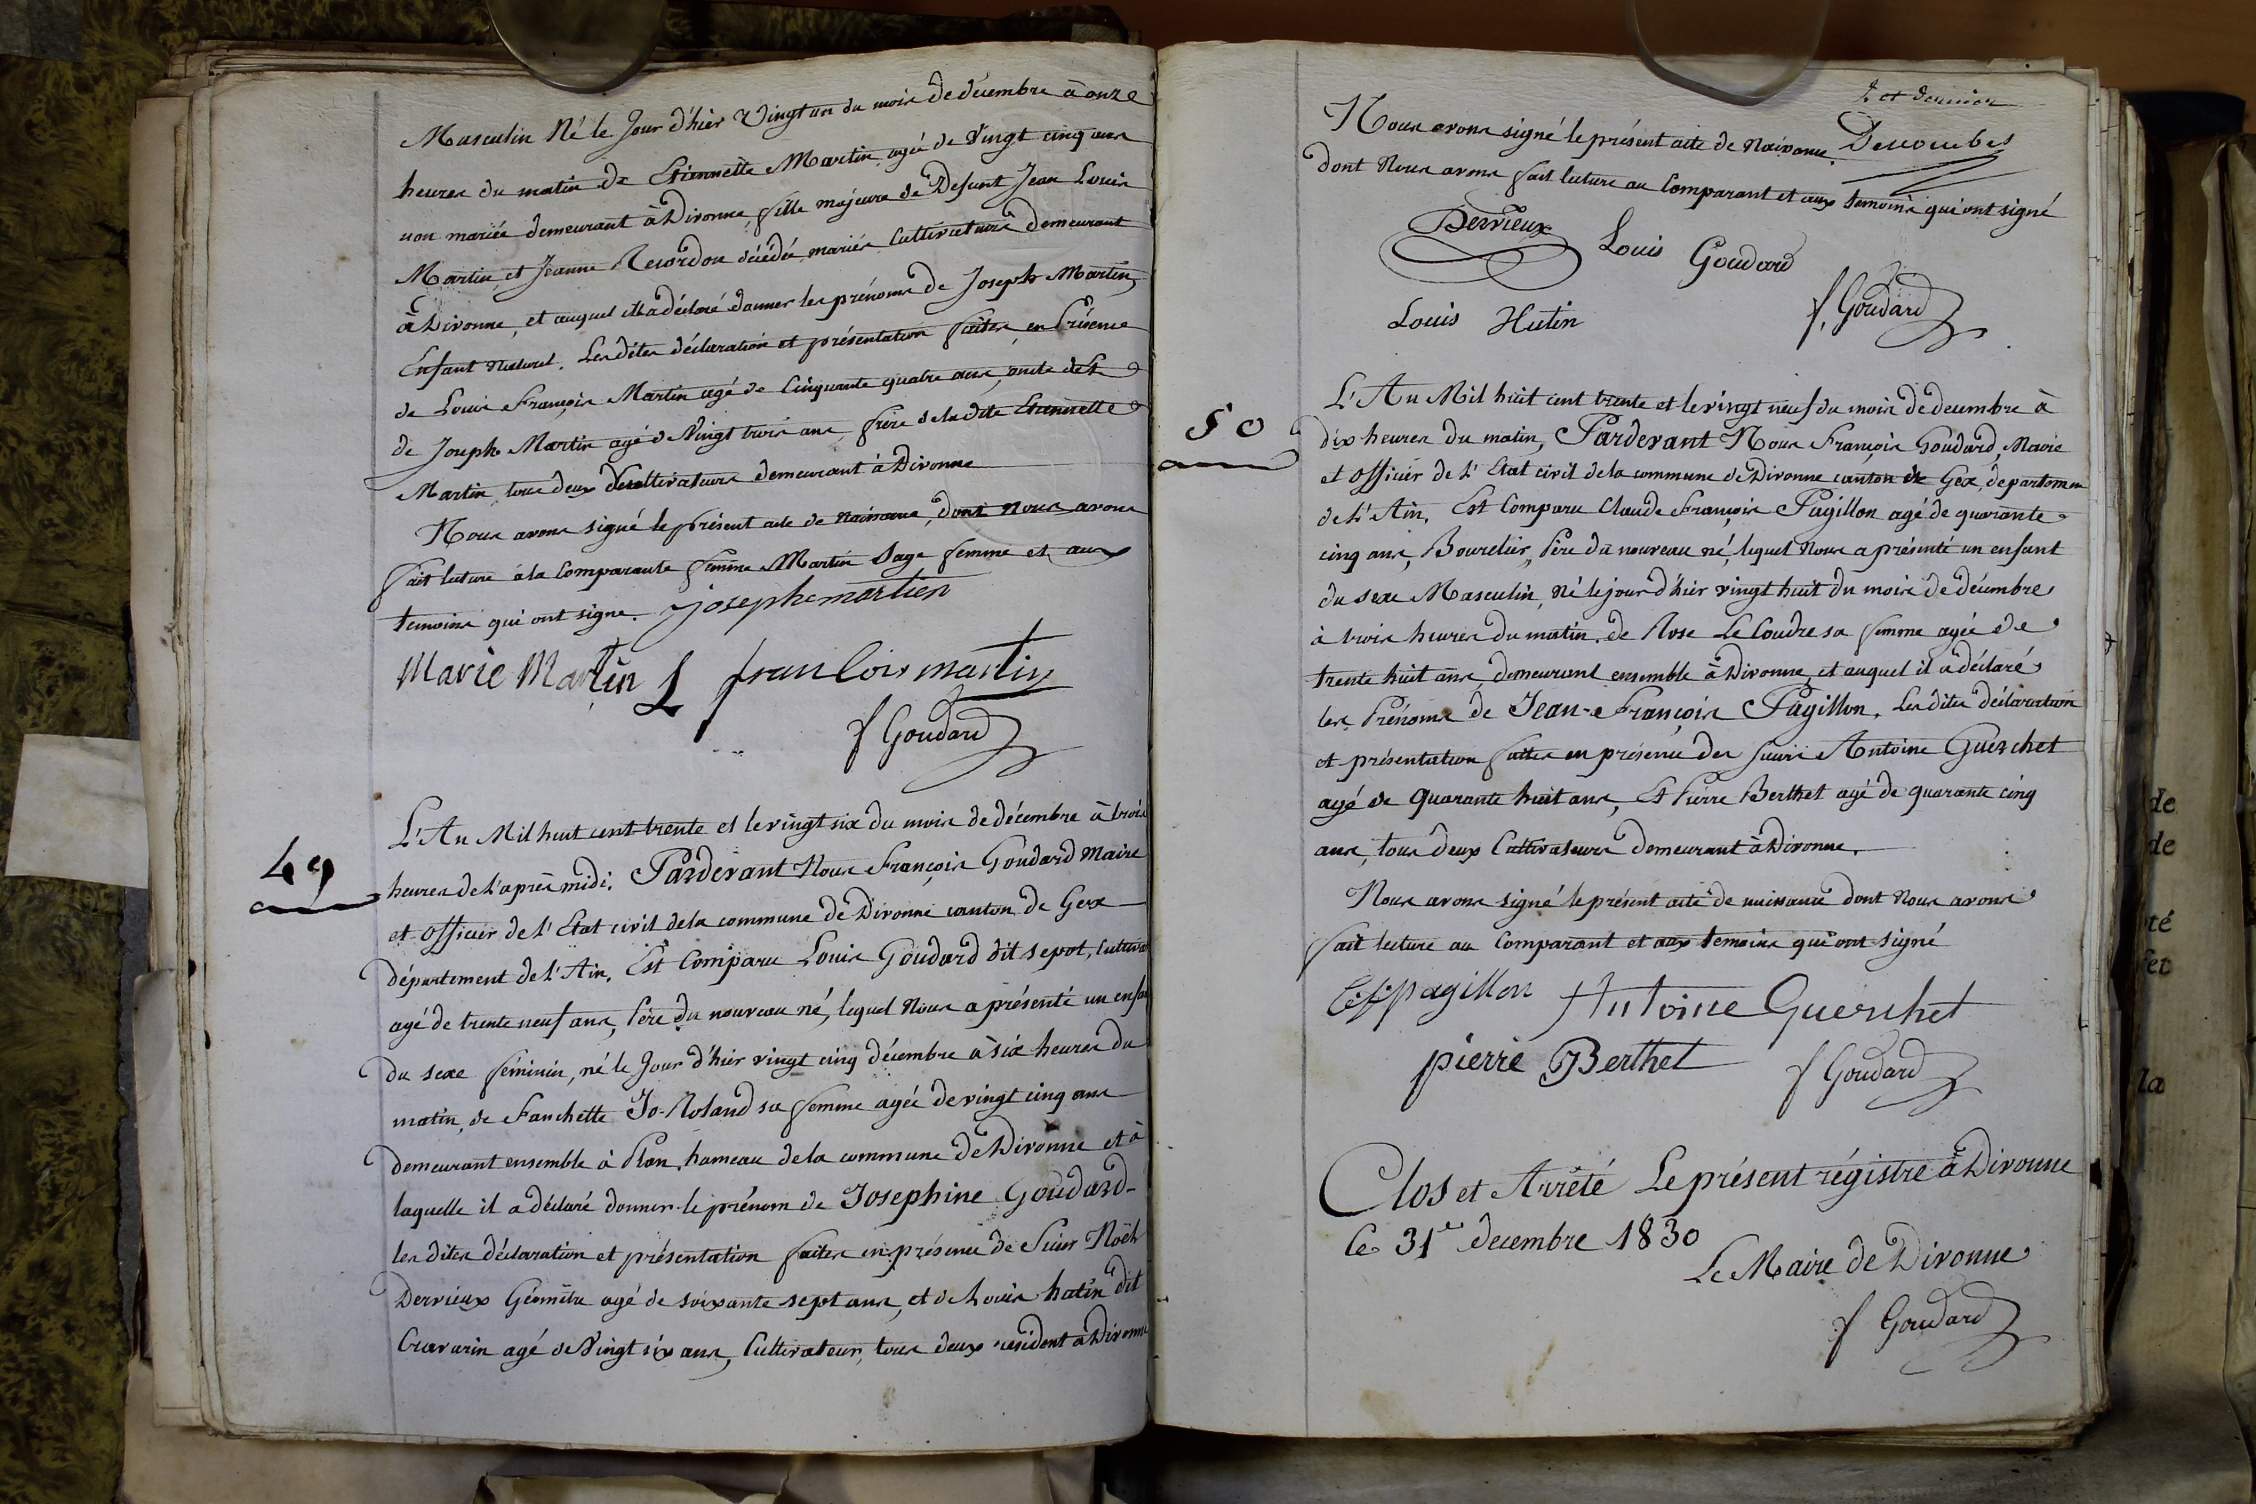 Masculin Né le Jour d'hier Vingt un du mois de décembre à onze
heures du matin de Etiennette Martin agée de Vingt cinq ans
non mariée demeurant à Divonne, fille majeure de Defunt Jean Louis
Martin, et Jeanne Recordon décédée, mariés Cultivateurs demeurant
à Divonne, et auquel Elle a déclaré donner les prénoms de Joseph Martin,
Enfant Naturel. Les dites déclaration et présentation faites, en Présence
de Louis François Martin agé de Cinquante quatre ans, oncle et
de Joseph Martin agé de Vingt trois ans, frère de la dite Etiennette
Martin, tous deux Cultivateurs demeurant à Divonne
Nous avons signé le présent acte de naissance, dont nous avons
fait lecture à la Comparante femme Martin Sage femme et aux
temoins qui ont signé. josephe martien
Marie Martin L fran Lois martin
f Goudard
49
L'An Mil huit cent trente et le vingt six du mois de décembre à trois
heures de l'après midi. Pardevant Nous François Goudard Maire
et officier de l'Etat civil de la commune de Divonne canton de Gex
département de l'Ain. Est Comparu Louis Goudard dit sepot, Cultiva
agé de trente neuf ans, Père du nouveau né, lequel Nous a présenté un enfan
du sexe féminin, né le Jour d'hier vingt cinq décembre à six heures du
matin, de Fanchette Jo-Roland sa femme agée de vingt cinq ans
demeurant ensemble à Plan, hameau de la commune de Divonne et à
laquelle il a déclaré donner le prénom de Josephine Goudard-
les dites déclaration et présentation faites en présence de Sieur Noël
Derrieux Géomètre agé de soixante sept ans, et de Louis hutin dit
Cravarin agé de Vingt six ans, Cultivateur, tous deux résident à Divonne
2 et dernier
Descombes
Nous avons signé le présent acte de Naissance.
dont Nous avons fait lecture au Comparant et aux temoins qui ont signé
Derrieux Louis Goudard
Louis Hutin f. Goudard
50
L'An Mil huit cent trente et le vingt neuf du mois de decembre à
dix heures du matin, Pardevant Nous François Goudard, Maire
et Officier de l'Etat civil de la commune de Divonne canton de Gex, departemen
de l'Ain. Est Comparu Claude François Pagillon agé de quarante
cinq ans, Bourelier, Père du nouveau né, lequel Nous a présenté un enfant
du sexe Masculin, né le jour d'hier vingt huit du mois de décembre
à trois heures du matin, de Rose Le Coudre sa femme agée de
trente huit ans, demeurant ensemble à Divonne, et auquel il a déclaré
les Prénoms de Jean-François Pagillon. Les dites déclaration
et présentation faites en présence des sieurs Antoine Guerchet
agé de Quarante huit ans, Et Pierre Berthet agé de quarante cinq
ans, tous deux Cultivateurs demeurant à Divonne.
Nous avons signé le présent acte de naissance dont Nous avons
fait lecture au Comparant et aux temoins qui ont signé
C.f. pagillon Antoine Guerchet
pierre Berthet f Goudard
Clos et Arrêté Le présent régistre à Divonne
Ce 31e decembre 1830
Le Maire de Divonne
f Goudard
de
de
té
la